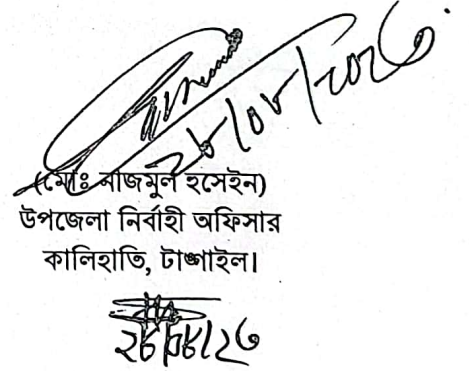 ২৮/০৮/২০২৩
(মোঃ নাজমুল হুসেইন)
উপজেলা নির্বাহী অফিসার
কালিহাতি, টাঙ্গাইল।
২৮/০৮/২৩